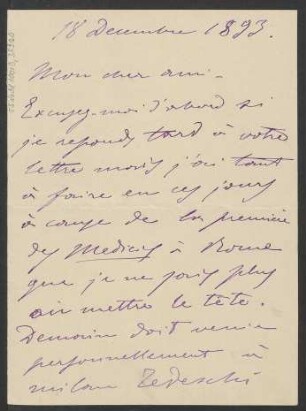 18 Decembre 1893.
Mon cher ami -
Excusez-moi d'abord si
je reponds tard à votre
lettre mais j'ai tant
à faire en ces jours
à cause de la première
des Medicis à Rome
que je ne sais plus
où mettre le tête.
Demain doit venir
personnellement à
Milan Tedeschi